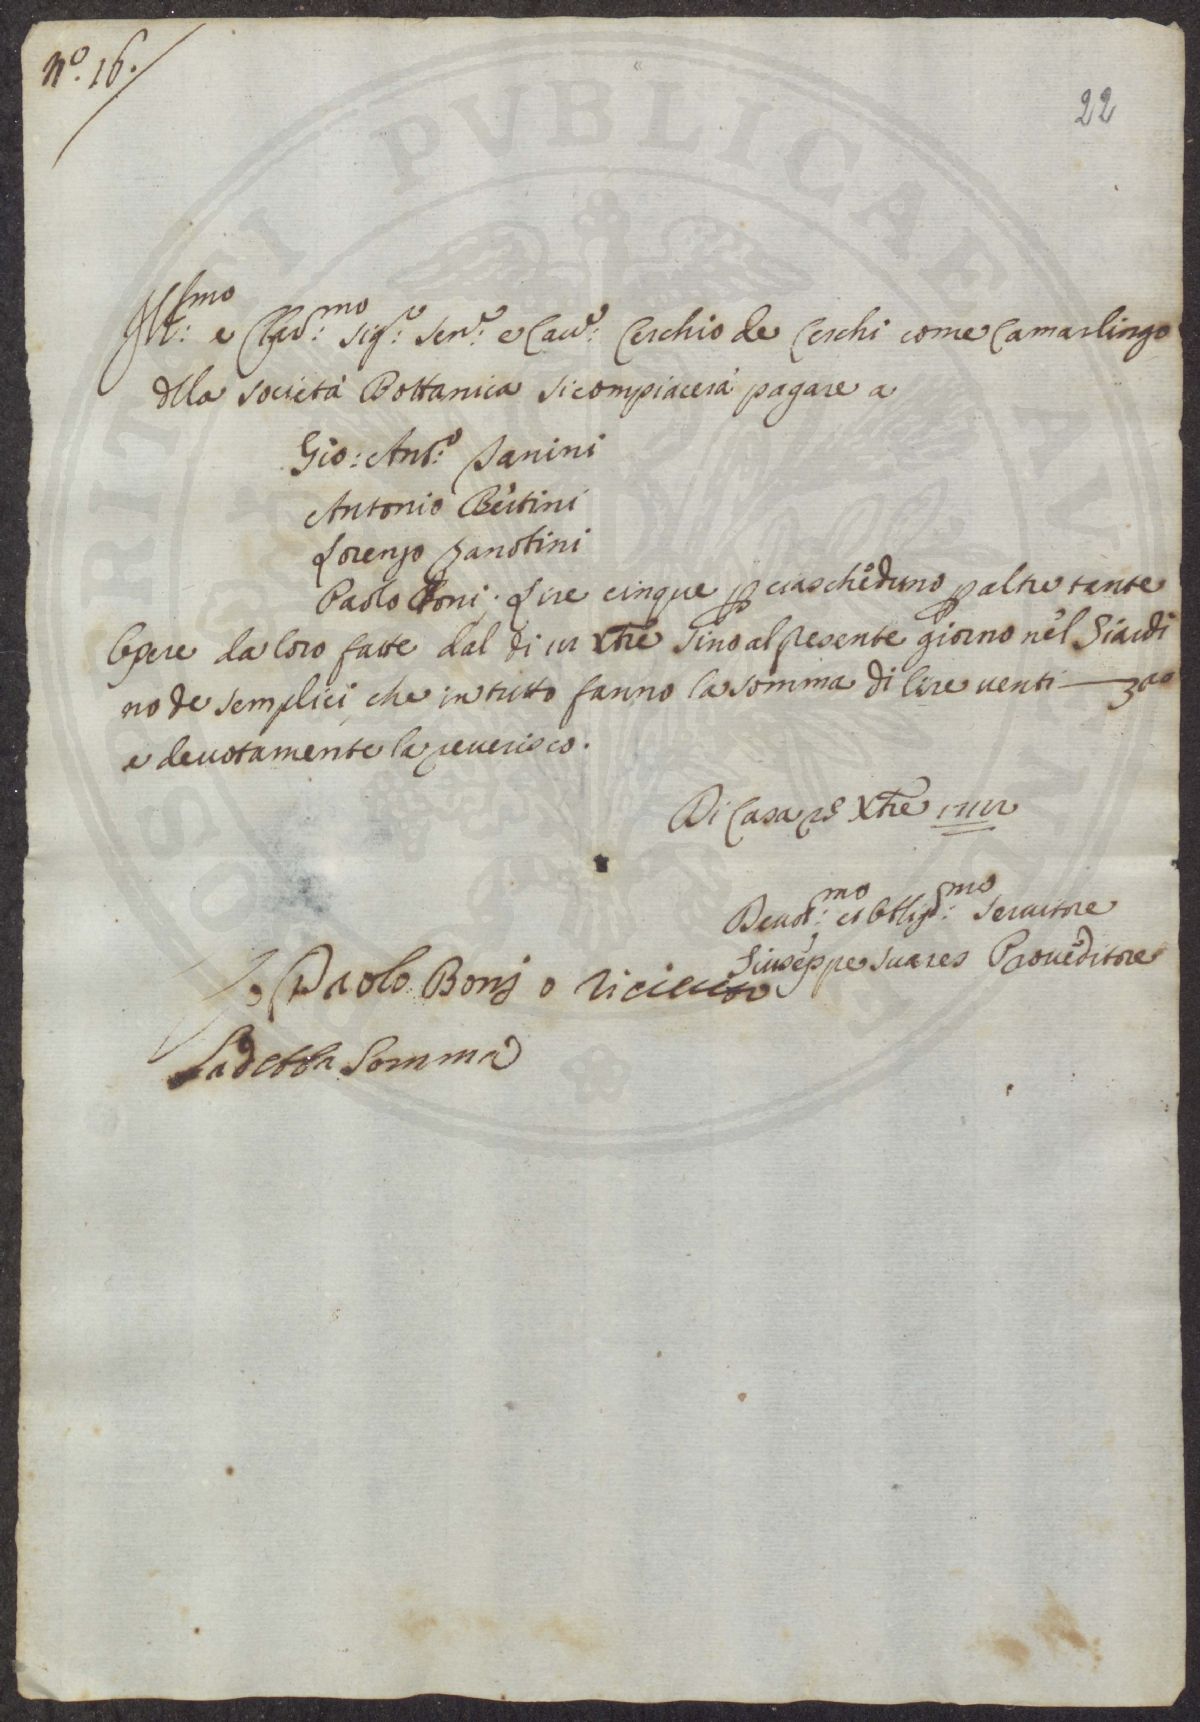 N.º 16.
22
Ill:mo e Clar:mo Sig:re Sen:re e Cav:re Cerchio de Cerchi come Camarlingo
dlla Società Bottanica si compiacerà pagare a
Gio: Ant:o Sanini
Antonio Bettini
Lorenzo Zanobini
Paolo Boni. Lire cinque p ciascheduno p altre tante
Opere da loro fatte dal di Xbre Sino al presente giorno nel Giardi
no de semplici che in tutto fanno la somma di lire venti
e devotamente la reverisco.
Di Casa Xbre
Devot:mo et Oblig:mo Servitore
Giuseppe Suares Proveditore
Io Paolo Bonj o
La detta Somma